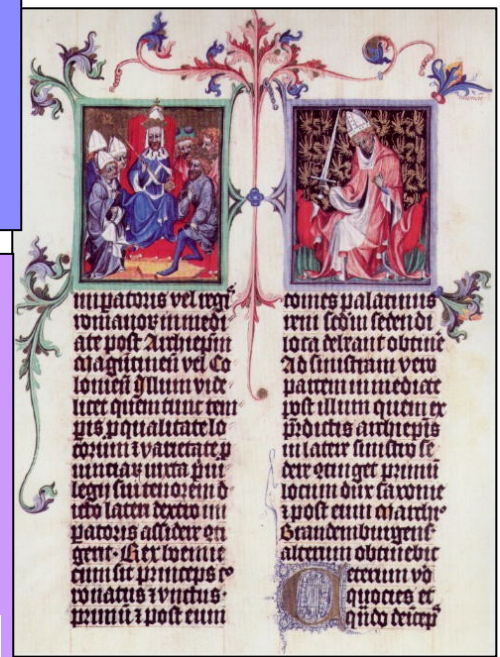 imꝑatoris vel regis
romanoꝝ immedi
ate post Archiepm̄
Magūtineñ vel Co
lonieñ illum vide
licet quem tunc tem
pis ꝓ qualitate lo
corum ⁊ varietate ꝓ
uinciaꝝ iuxta pͥui
legij sui tenorem in d
icto latere dextro im
patoris assidere ꝯtin
gent. Rex boemie
cum sit princeps co
ronatus ⁊ vnctus.
primū ⁊ post eum
comes palatinus
reni scd̄m sedendi
loca debeant obtine
Ad sinistram vero
partem immediate
post illum quem ex
p̄dictis archiep̄is
in latere sinistro se
dere ꝯtinget primū
locum dux saxonie
⁊ post eum Marchio
Brandemburgens
alterum obtinebit
Ceterum vō
quocies et
qn̄do deicep̄